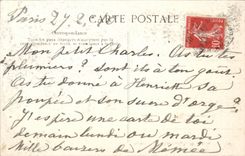 Paris 27 2
CARTE POSTALE
Correspondance
10
Mon petit Charles, As tu les
plumiers? sont ils à ton goût
As tu donné à Henriette sa
poupée et son sucre d'orge?
J'espère une carte de toi
demain lundi ou mardi
Mille baisers de Mémée